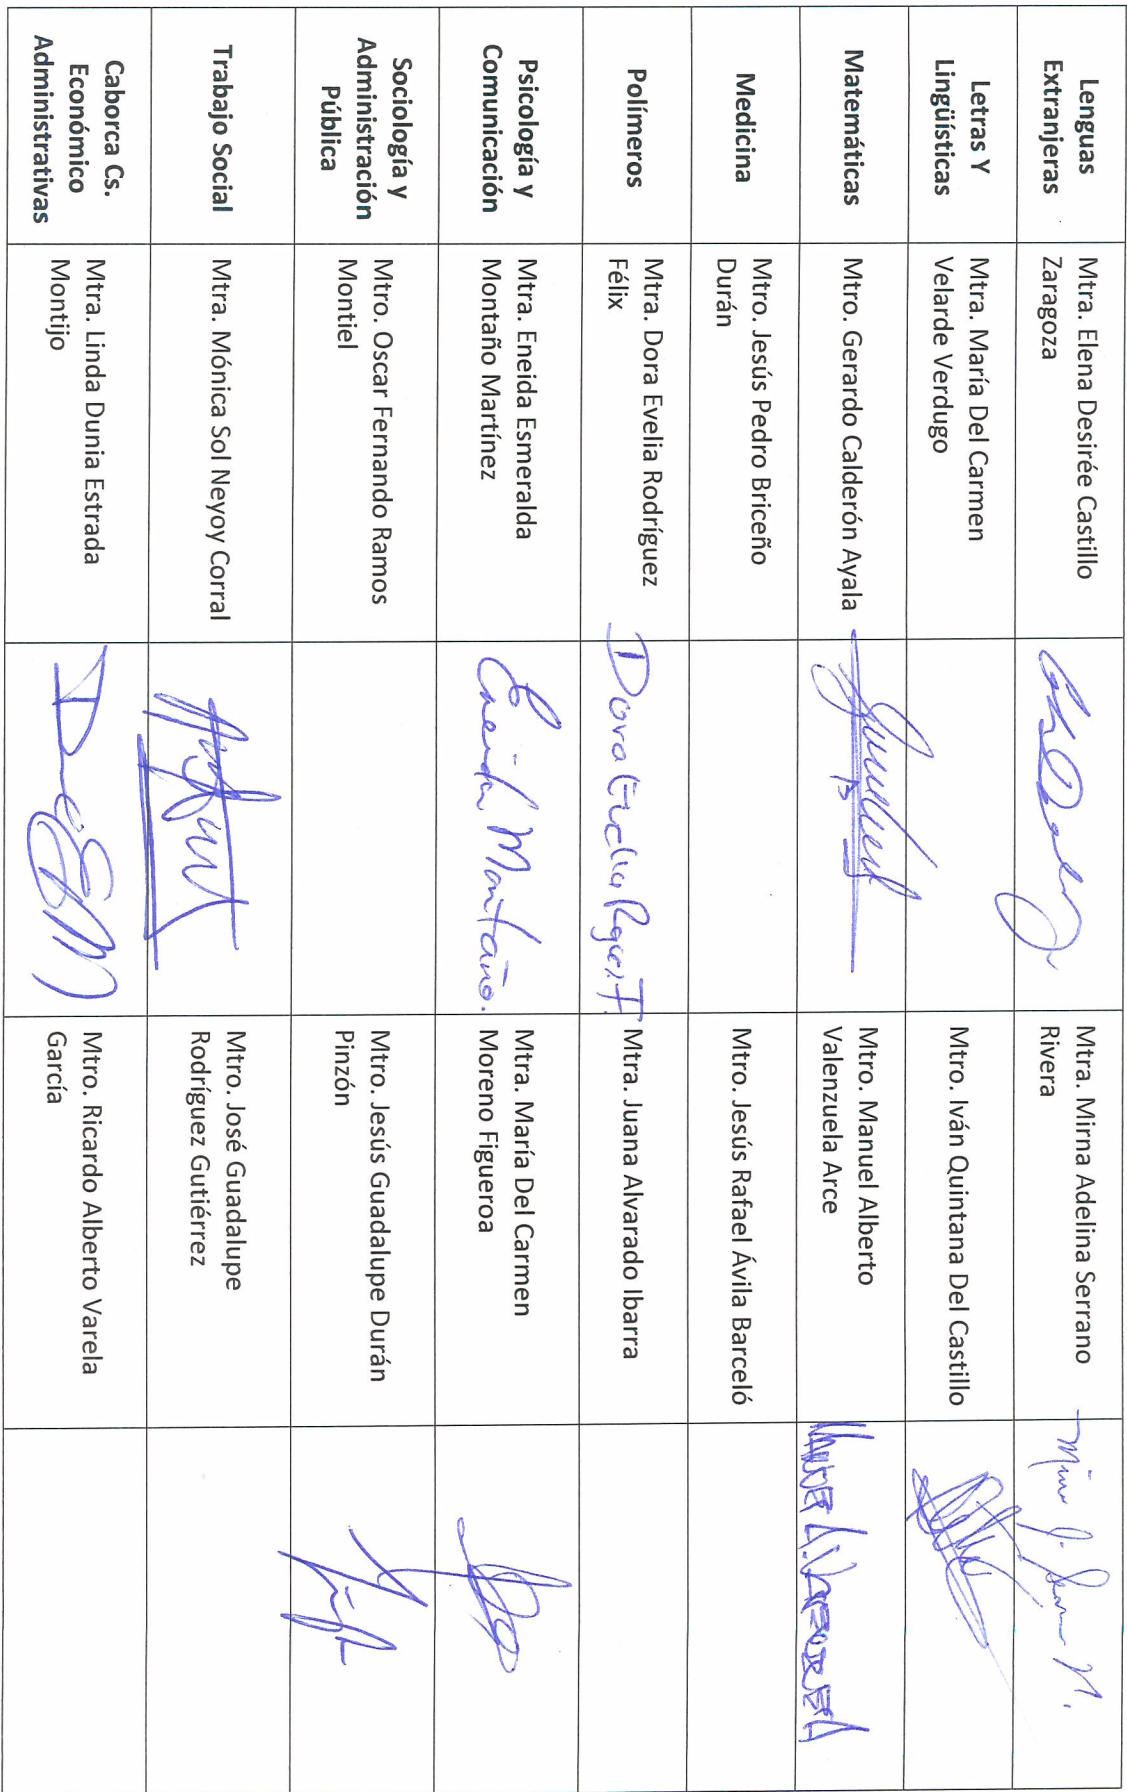 Lenguas
Extranjeras
Mtra. Elena Desirée Castillo
Zaragoza
Mtra. Mirna Adelina Serrano
Rivera
Letras Y
Lingüísticas
Mtra. María Del Carmen
Velarde Verdugo
Mtro. Iván Quintana Del Castillo
Matemáticas
Mtro. Gerardo Calderón Ayala
Mtro. Manuel Alberto
Valenzuela Arce
Medicina
Mtro. Jesús Pedro Briceño
Durán
Mtro. Jesús Rafael Ávila Barceló
Polímeros
Mtra. Dora Evelia Rodríguez
Félix
Dora Evelia
Mtra. Juana Alvarado Ibarra
Psicología y
Comunicación
Mtra. Eneida Esmeralda
Montaño Martínez
Eneida Montaño.
Mtra. María Del Carmen
Moreno Figueroa
Sociología y
Administración
Pública
Mtro. Oscar Fernando Ramos
Montiel
Mtro. Jesús Guadalupe Durán
Pinzón
Trabajo Social
Mtra. Mónica Sol Neyoy Corral
Mtro. José Guadalupe
Rodríguez Gutiérrez
Caborca Cs.
Económico
Administrativas
Mtra. Linda Dunia Estrada
Montijo
Mtro. Ricardo Alberto Varela
García